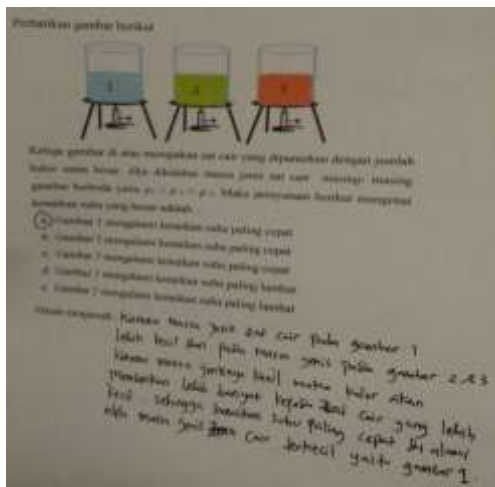 Perhatikan gambar berikut
1 2 3
Ketiga gambar di atas merupakan zat cair yang dipanaskan dengan jumlah
kalor sama besar. Jika diketahui massa jenis zat cair masing-masing
gambar berbeda yaitu Maka pernyataan berikut mengenai
kenaikan suhu yang benar adalah
a. Gambar 1 mengalami kenaikan suhu paling cepat
b. Gambar 2 mengalami kenaikan suhu paling cepat
c. Gambar 3 mengalami kenaikan suhu paling cepat
d. Gambar mengalami kenaikan suhu paling lambat
e. Gambar 2 mengalami kenaikan suhu paling lambat
Karena Massa Jenis zat cair pada gambar 1
lebih kecil dari pada massa jenis pada gambar 2 & 3
karena massa jenisnya kecil maka kalor akan
memberikan lebih banyak kepada zat cair yang lebih
kecil sehingga kenaikan suhu paling cepat di alami
oleh massa jenis cair terkecil yaitu gambar 1.